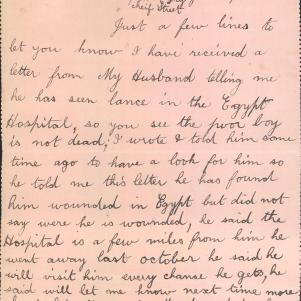 Street
Just a few lines to
let you know I have received a
letter from My Husband telling me
he has seen lance in the Egypt
Hospital, so you see the poor boy
is not dead, I wrote & told him some
time ago to have a look for him so
he told me this letter he has found
him wounded in Egypt but did not
say were he is wounded, he said the
Hospital is a few miles from him he
went away last october he said he
will visit him every chanse he gets, he
said will let me know next time more